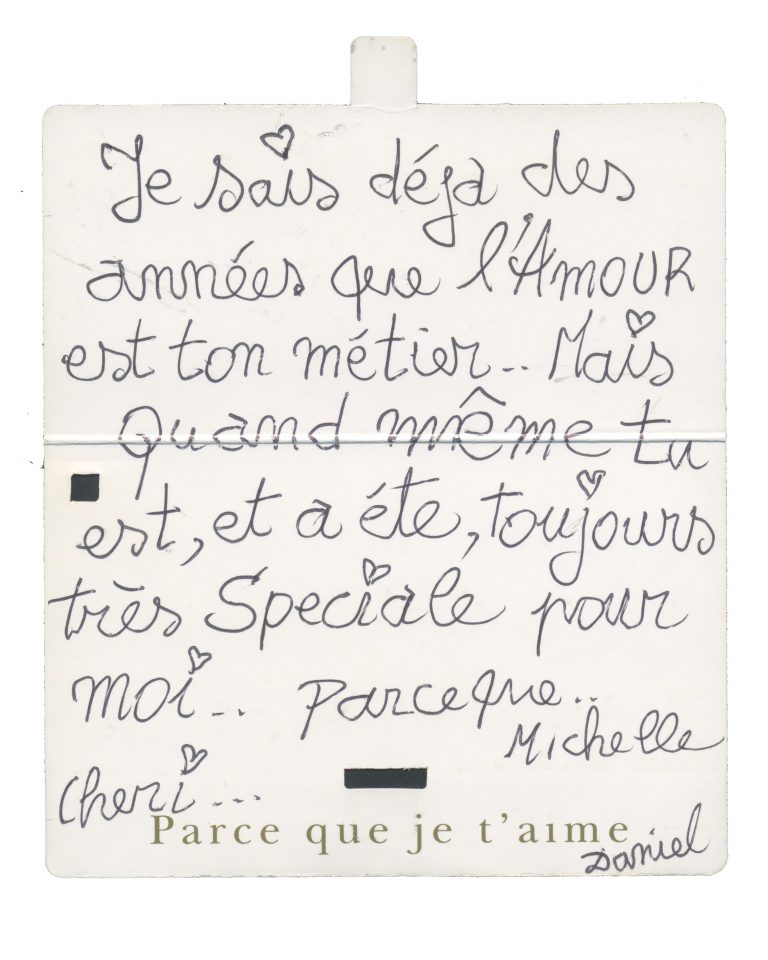 Je sais déja des
années que l'AmOUR
est ton métier.. Mais
quand même tu
est, et a éte, toujours
très Speciale pour
moi.. Parceque..
Michelle
Cheri...
Parce que je t'aime
Daniel